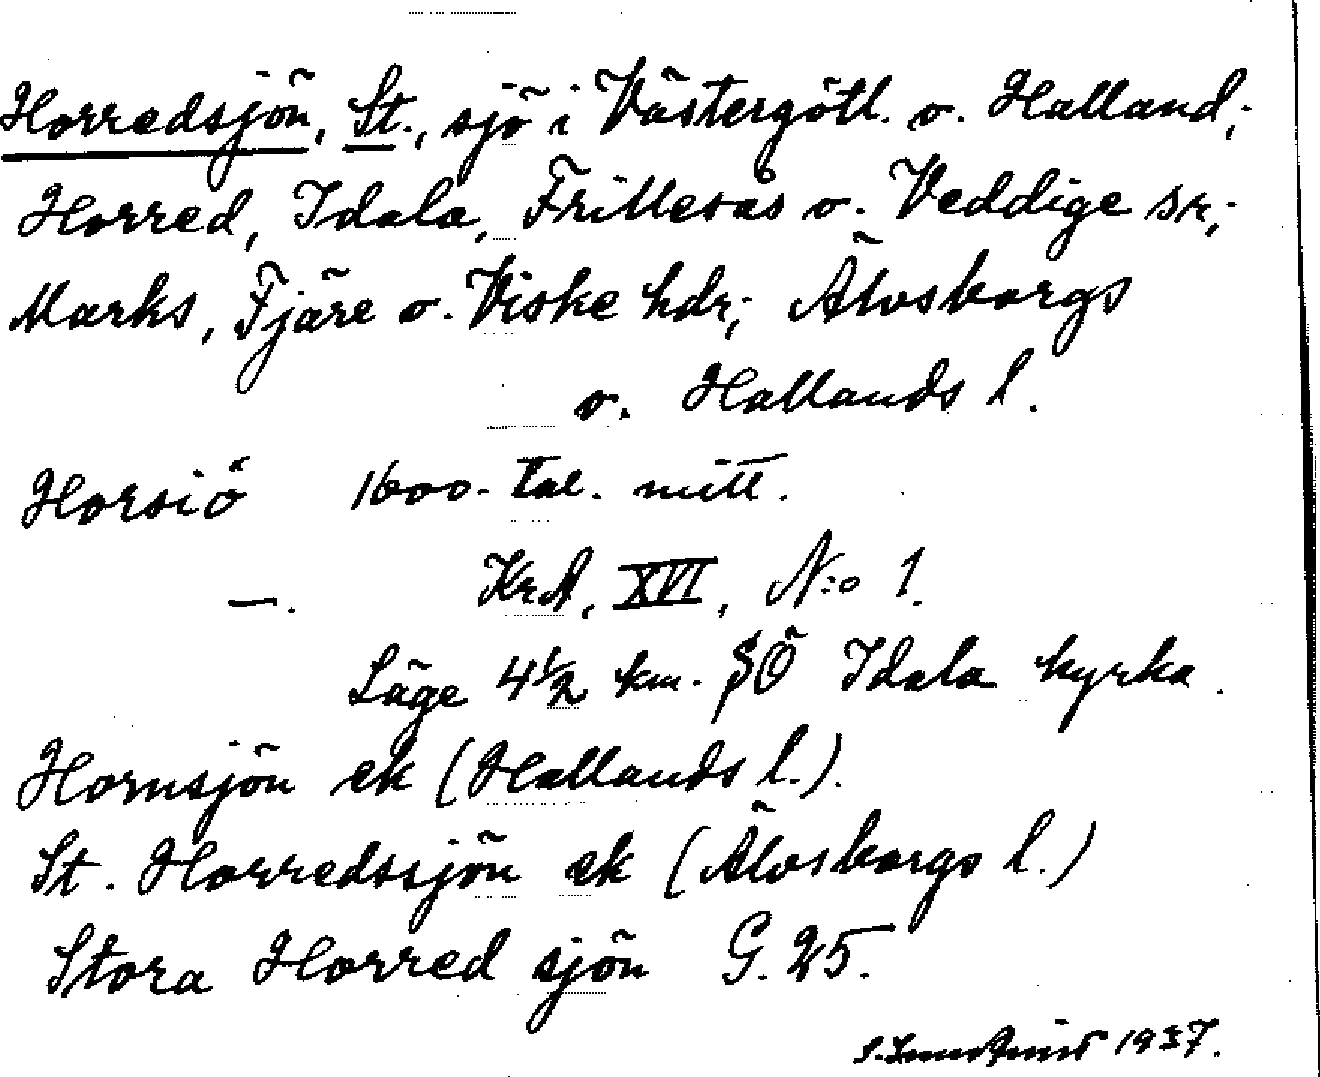 Horredsjön, St., sjö i Västergötl. o. Halland;
Horred, Idala, Frillesås o. Veddige snr;
Marks, Fjäre o. Viske hdr; Älvsborgs
o. Hallands l.
Horsiö 1600-tal. mitt.
—. KrA, XVI, N:o 1.
Läge 4½ km. SÖ Idala kyrka.
Hornsjön ek (Hallands l.).
St. Horredssjön ek (Älvsborgs l.)
Stora Horred sjön G. 25.
1937.